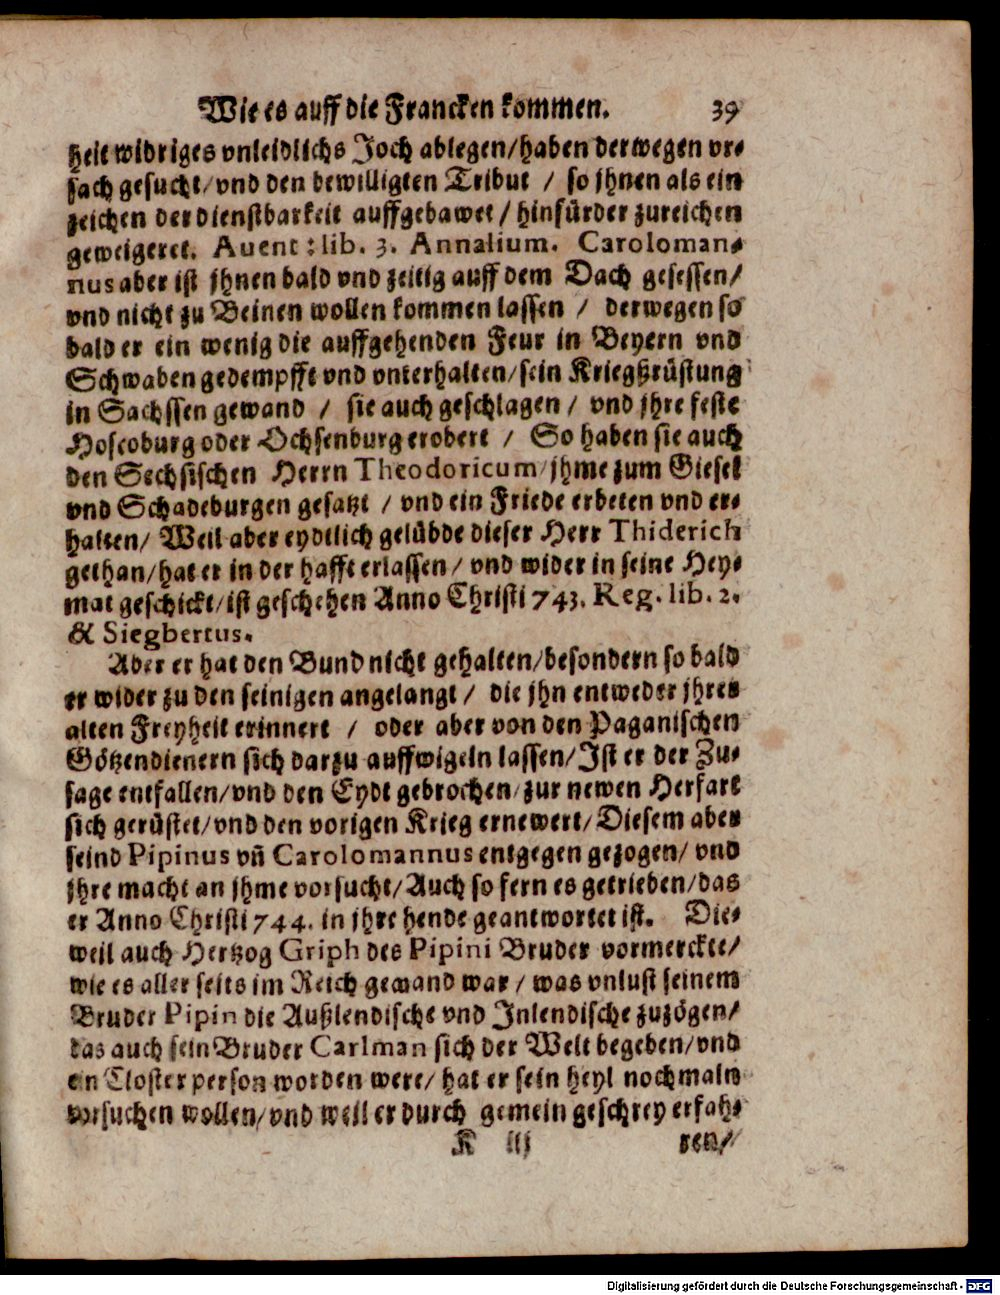 Wie es auff die Francken kommen. 39
heit widriges vnleidlichs Joch ablegen/haben derwegen vr-
sach gesucht/vnd den bewilligten Tribut / so jhnen als ein
zeichen der dienstbarkeit auffgebawet / hinfürder zureichen
geweigeret. Auent: lib. 3. Annalium. Caroloman-
nus aber ist jhnen bald vnd zeitig auff dem Dach gesessen/
vnd nicht zu Beinen wollen kommen lassen / derwegen so
bald er ein wenig die auffgehenden Feur in Beyern vnd
Schwaben gedempfft vnd vnterhalten/sein Kriegßrüstung
in Sachssen gewand / sie auch geschlagen / vnd jhre feste
Hoscoburg oder Ochsenburg erobert / So haben sie auch
den Sechsischen Herrn Theodoricum/jhme zum Giesel
vnd Schadeburgen gesatzt / vnd ein Friede erbeten vnd er-
halten/ Weil aber eydtlich gelübde dieser Herr Thiderich
gethan/hat er in der hafft erlassen/ vnd wider in seine Hey-
mat geschickt/ist geschehen Anno Christi 743. Reg. lib. 2.
& Siegbertus.
Aber er hat den Bund nicht gehalten/besondern so bald
er wider zu den seinigen angelangt / die jhn entweder jhres
alten Freyheit erinnert / oder aber von den Paganischen
Götzendienern sich darzu auffwigeln lassen/Ist er der Zu-
sage entfallen/vnd den Eydt gebrochen/zur newen Herfart
sich gerüstet/vnd den vorigen Krieg ernewert/Diesem aber
seind Pipinus vñ Carolomannus entgegen gezogen/ vnd
jhre macht an jhme vorsucht/Auch so fern es getrieben/das
er Anno Christi 744. in jhre hende geantwortet ist. Die-
weil auch Hertzog Griph des Pipini Bruder vormerckte/
wie es aller seits im Reich gewand war / was vnlust seinem
Bruder Pipin die Außlendische vnd Inlendische zuzögen/
das auch sein Bruder Carlman sich der Welt begeben/vnd
ein Closter person worden were/ hat er sein heyl nochmaln
vorsuchen wollen/vnd weil er durch gemein geschrey erfah-
K iij ren/
Digitalisierung gefördert durch die Deutsche Forschungsgemeinschaft - DFG